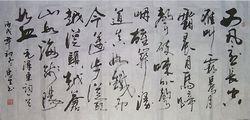 西风烈长空
雁叫霜晨月
霜晨月马蹄
声碎喇叭声
咽雄关漫
道真如铁而
今迈步从头
越从头越苍
山如海残阳
如血